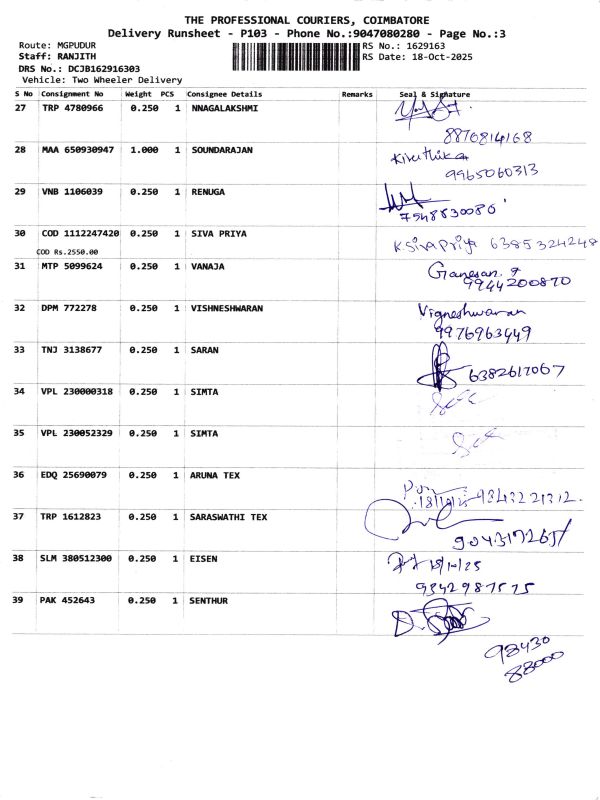 THE PROFESSIONAL COURIERS, COIMBATORE
Delivery Runsheet - P103 - Phone No.:9047080280 - Page No.:3
Route: MGPUDUR RS No.: 1629163
Staff: RANJITH RS Date: 18-Oct-2025
DRS No.: DCJB162916303
Vehicle: Two Wheeler Delivery
S No Consignment No Weight PCS Consignee Details Remarks Seal & Signature
27 TRP 4780966 0.250 1 NNAGALAKSHMI
8870814168
28 MAA 650930947 1.000 1 SOUNDARAJAN Kiruthika
9965060313
29 VNB 1106039 0.250 1 RENUGA
7548830086
30 COD 1112247420 0.250 1 SIVA PRIYA K.Siva Priya 6385324248
COD Rs.2550.00
31 MTP 5099624 0.250 1 VANAJA Ganesan
9944200870
32 DPM 772278 0.250 1 VISHNESHWARAN Vigneshwaran
9976963449
33 TNJ 3138677 0.250 1 SARAN
6382617067
34 VPL 230000318 0.250 1 SIMTA
35 VPL 230052329 0.250 1 SIMTA
36 EDQ 25690079 0.250 1 ARUNA TEX
18/10/25 9343221312
37 TRP 1612823 0.250 1 SARASWATHI TEX
38 SLM 380512300 0.250 1 EISEN
9342987575
39 PAK 452643 0.250 1 SENTHUR
98430
88000